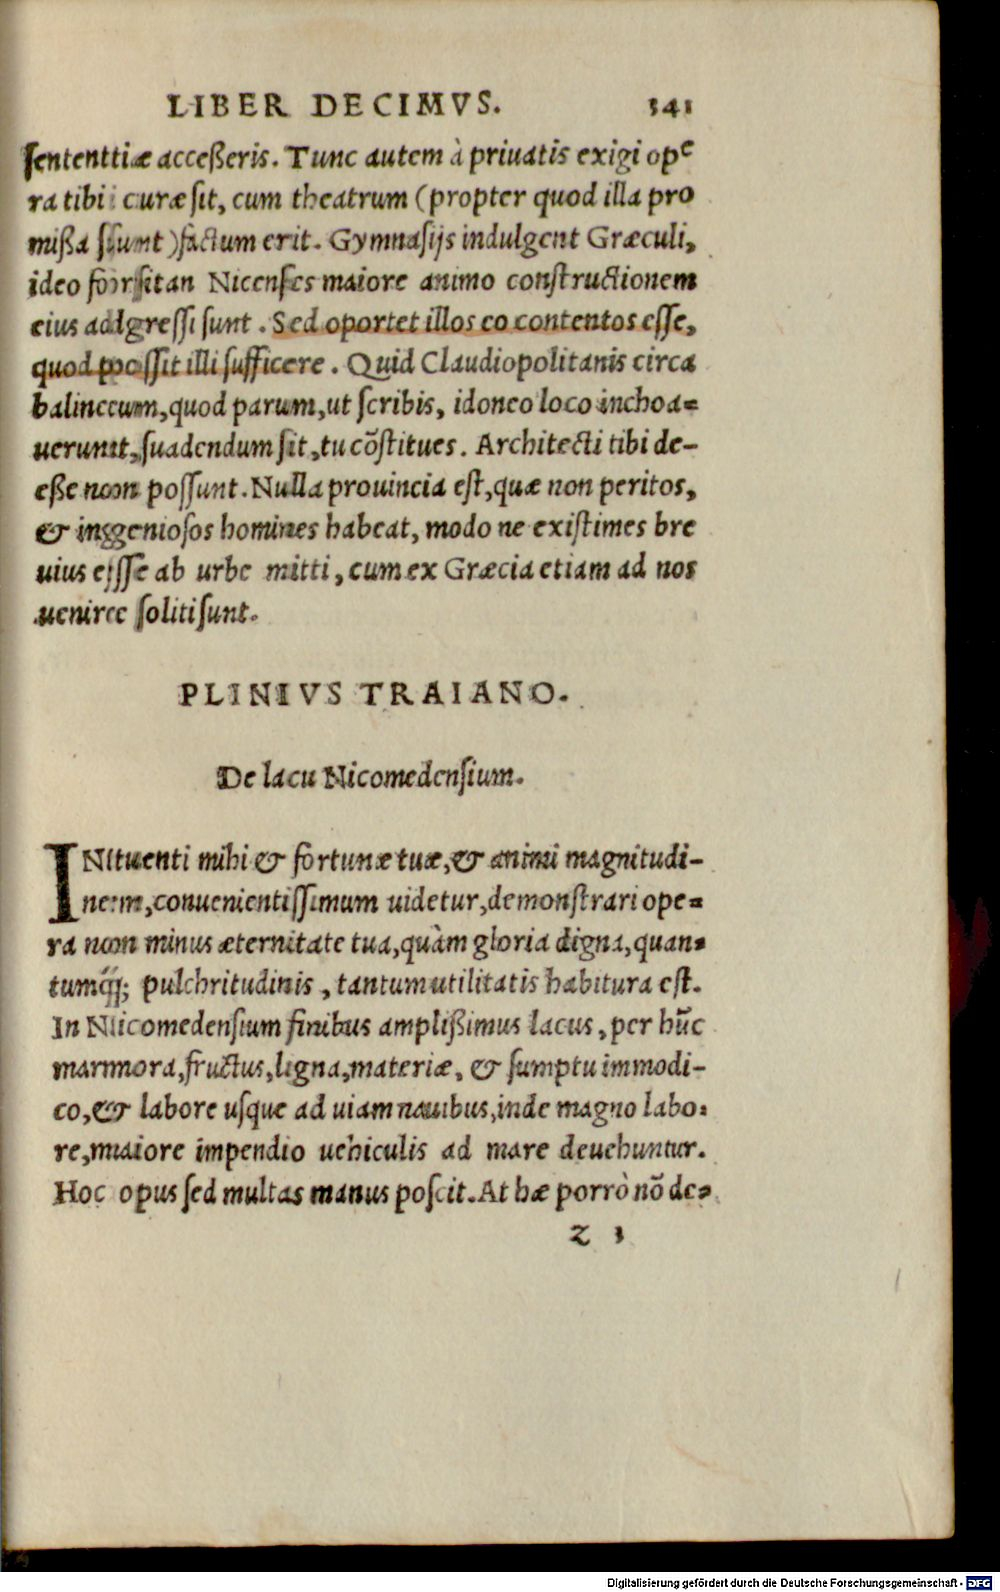 LIBER DECIMVS. 341
ſententiæ acceßeris. Tunc autem à priuatis exigi ope
ra tibi curæ ſit, cum theatrum (propter quod illa pro
mißa ſunt) factum erit. Gymnaſijs indulgent Græculi,
ideo forſitan Nicenſes maiore animo conſtructionem
eius adgreſſi ſunt. Sed oportet illos eo contentos eſſe,
quod poſſit illi ſufficere. Quid Claudiopolitanis circa
balineum, quod parum, ut ſcribis, idoneo loco inchoa=
uerunt, ſuadendum ſit, tu cōſtitues. Architecti tibi de-
eße non poſſunt. Nulla prouincia eſt, quæ non peritos,
& ingenioſos homines habeat, modo ne exiſtimes bre
uius eſſe ab urbe mitti, cum ex Græcia etiam ad nos
uenire ſoliti ſunt.
PLINIVS TRAIANO.
De lacu Nicomedenſium.
INtuenti mihi & fortunæ tuæ, & animi magnitudi-
nem, conuenientiſſimum uidetur, demonſtrari ope=
ra non minus æternitate tua, quàm gloria digna, quan=
tumq́; pulchritudinis, tantum utilitatis habitura eſt.
In Nicomedenſium finibus amplißimus lacus, per hūc
marmora, fructus, ligna, materiæ, & ſumptu immodi-
co, & labore uſque ad uiam nauibus, inde magno labo=
re, maiore impendio uehiculis ad mare deuehuntur.
Hoc opus ſed multas manus poſcit. At hæ porrò nō de=
z 3
Digitalisierung gefördert durch die Deutsche Forschungsgemeinschaft - DFG